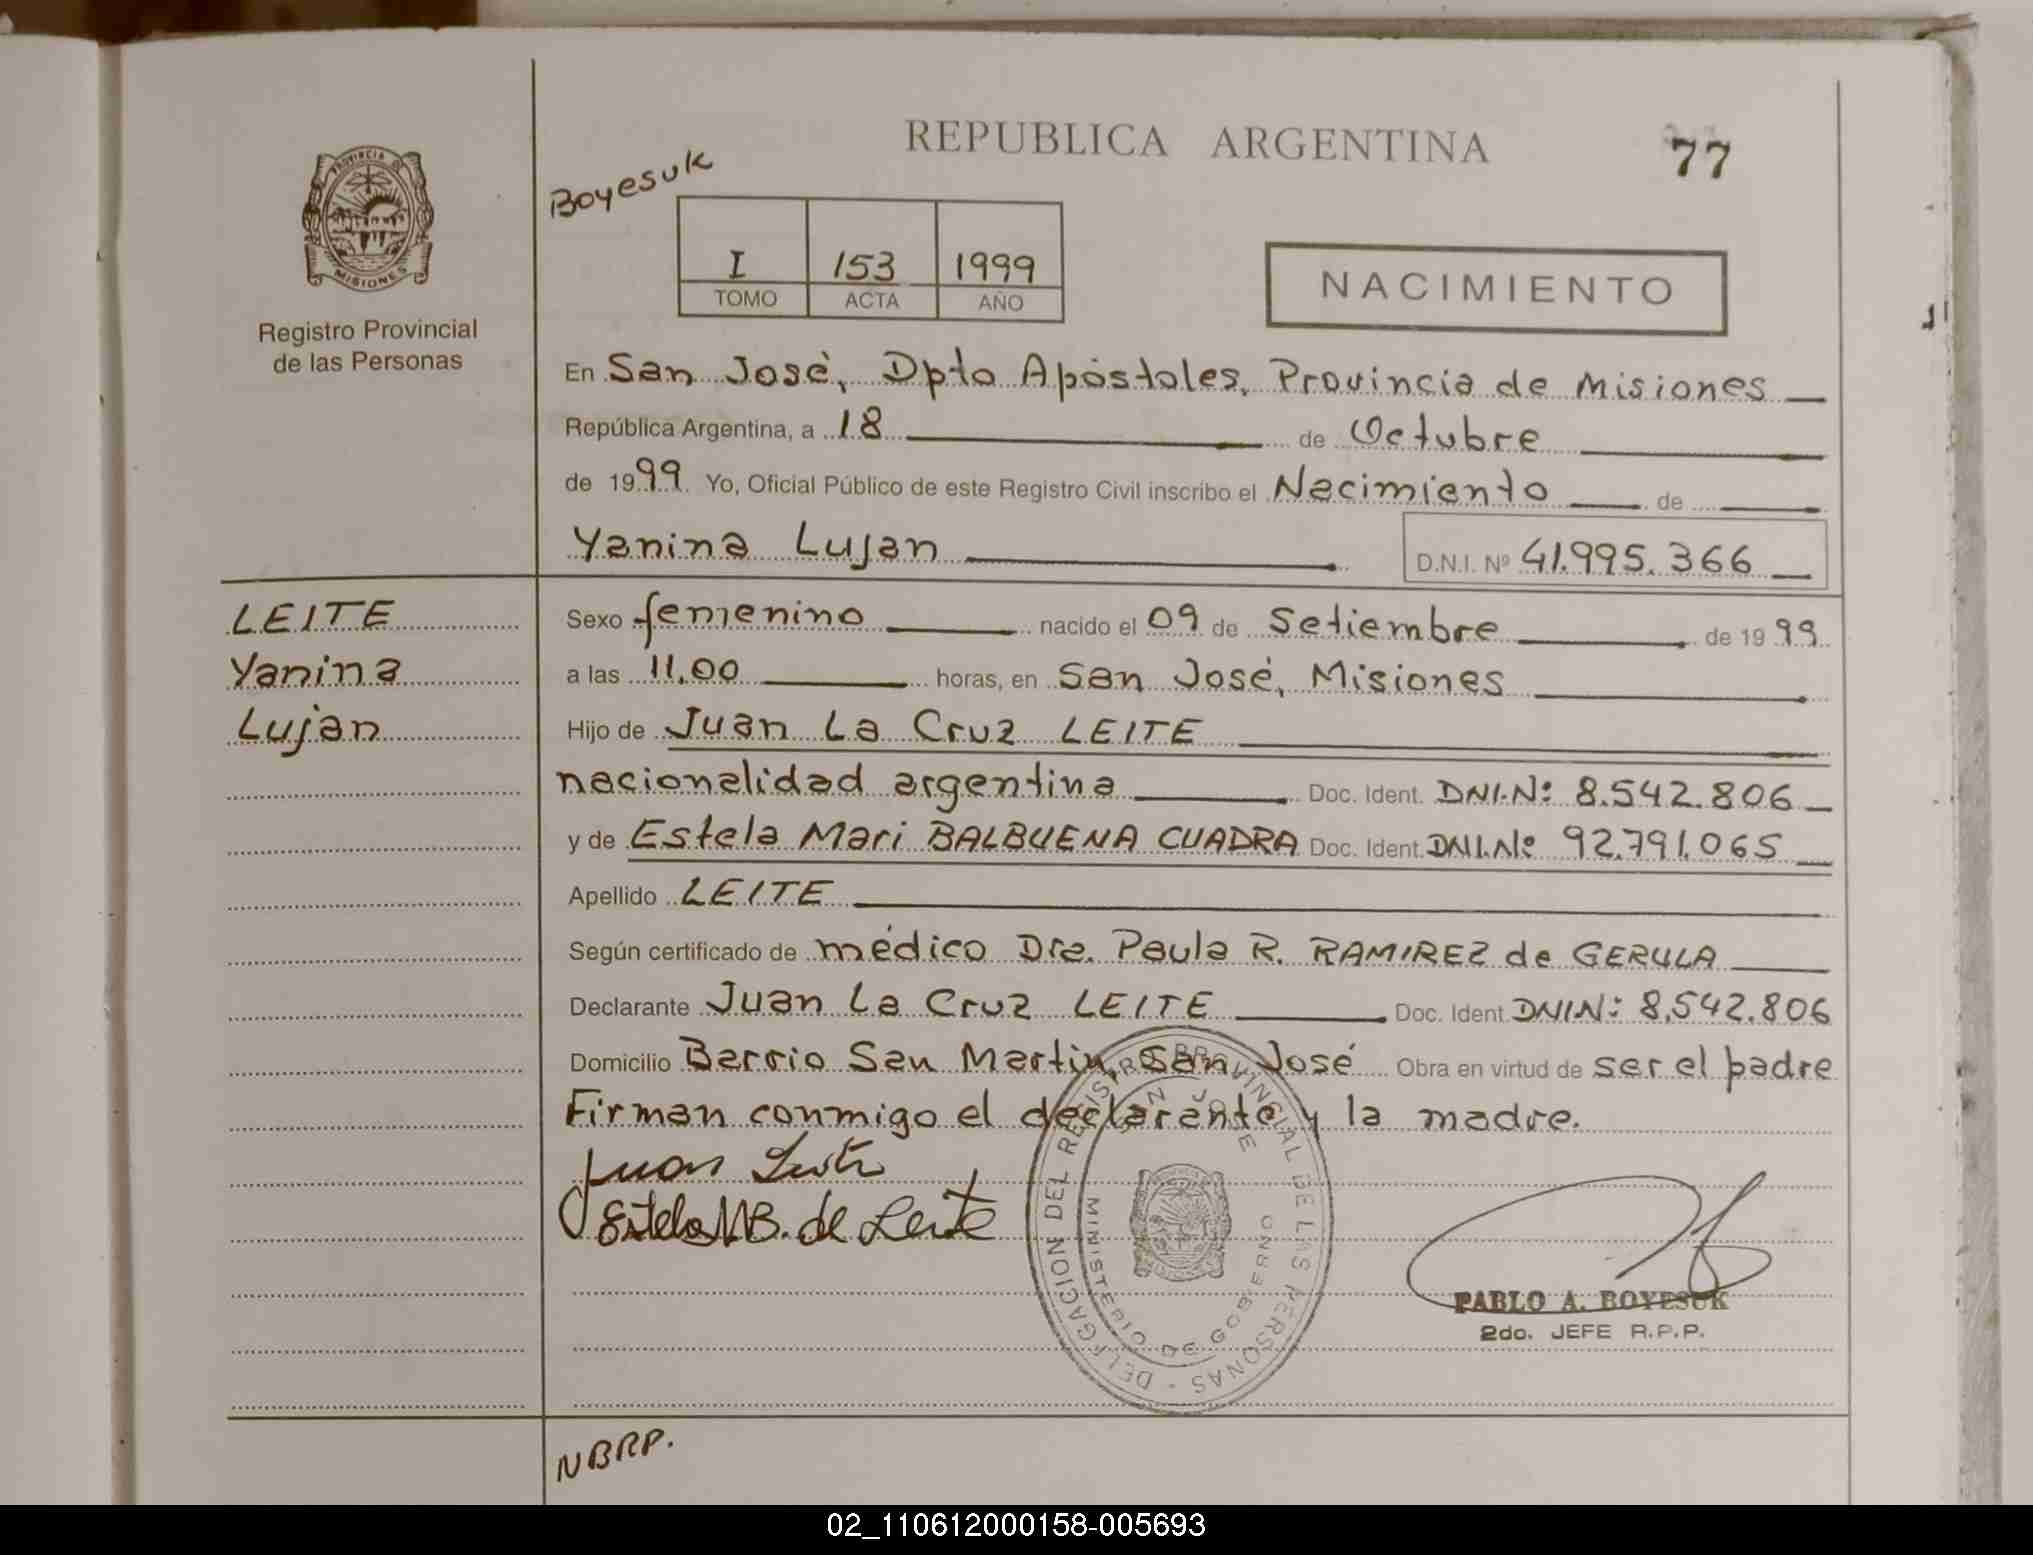 REPUBLICA ARGENTINA
77
PROVINCIA DE MISIONES
Registro Provincial
de las Personas
Boyesuk
I 153 1999
TOMO ACTA AÑO
NACIMIENTO
En San José, Dpto Apóstoles, Provincia de Misiones
República Argentina, a 18 de Octubre
de 1999 Yo, Oficial Público de este Registro Civil inscribo el Nacimiento de
Yanina Lujan D.N.I. Nº 41.995.366
LEITE
Yanina
Luján
Sexo femenino nacido el 09 de Setiembre de 1999
a las 11,00 horas, en San José, Misiones
Hijo de Juan La Cruz LEITE
nacionalidad argentina Doc. Ident. DNI.Nº 8.542.806
y de Estela Mari BALBUENA CUADRA Doc. Ident. DNI.Nº 92.791.065
Apellido LEITE
Según certificado de médico Dra. Paula R. RAMIREZ de GERULA
Declarante Juan La Cruz LEITE Doc. Ident. DNI Nº 8,542.806
Domicilio Barrio San Martín, San José Obra en virtud de ser el padre
Firman conmigo el declarante y la madre.
Juan Leite
Estela M B. de Leite
DELEGACION DEL REGISTRO PROVINCIAL DE LAS PERSONAS -
SAN JOSE
MINISTERIO DE GOBIERNO
PABLO A. BOYESUK
2do. JEFE R.P.P.
NBRP.
02_110612000158-005693